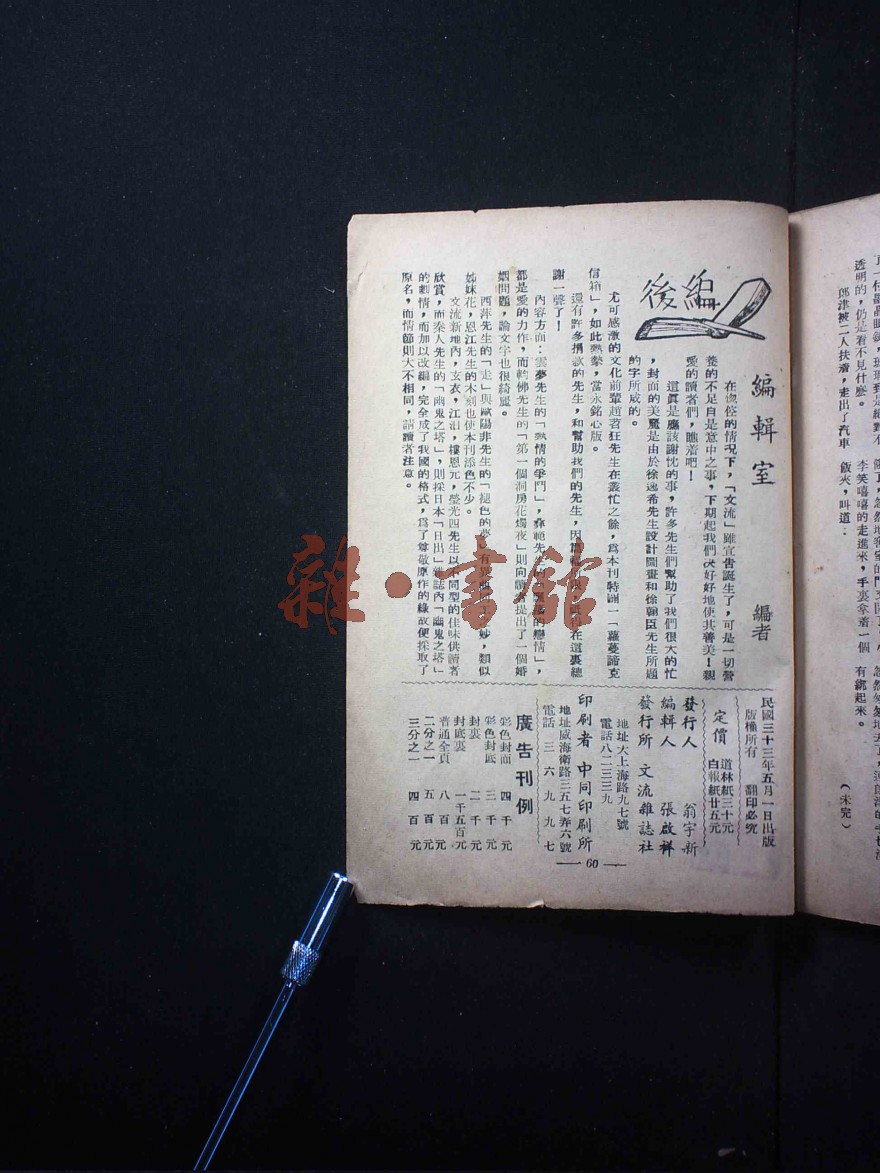 編後
編輯室
編者
在匆促的情況下,「文流」雖宣告誕生了,可是一切營
養的不足自是意中之事,下期起我們決好好地使其善美!親
愛的讀者們,瞧着吧!
這眞是應該謝忱的事,許多先生們幫助了我們很大的忙
,封面的美麗是由於徐逸希先生設計圖畫和徐翰臣先生所題
的字所成的。
尤可感激的文化前輩趙若狂先生在叢忙之餘,爲本刊特闢一「蘿蔓蹄克
信箱」,如此熱摯,當永銘心版。
還有許多捐款的先生,和幫助我們的先生,因 在這裏總
謝一聲了!
內容方面:雲夢先生的「熱情的爭鬥」,彝範先生 戀情」,
都是愛的力作,而鶴佛先生的「第一個洞房花燭夜」則向讀者提出了一個婚
姻問題,論文字也很綺麗。
西萍先生的「走」與歐陽非先生的「褪色的夢」有異 妙,類似
姊妹花,恩江先生的木刻也使本刊添色不少。
文流新地內,玄衣,江汨,樓恩元,瑩光四先生以不同型的佳味供讀者
欣賞,而秦人先生的「幽鬼之塔」,則採日本「日出」雜誌內「幽鬼之塔」
的劇情,而加以改編,完全成了我國的格式,爲了尊敬原作的緣故便採取了
原名,而情節則大不相同,請讀者注意。
民國三十三年五月一日出版
版權所有 翻印必究
定價 道林紙三十元
白報紙廿五元
發行人 翁宇新
編輯人 張啟祥
發行所 文流雜誌社
地址大上海路九七號
電話八二三三九
印刷者 中同印刷所
地址威海衛路三五七弄六號
電話 三六九九七
廣告刊例
彩色封面 四千元
彩色封底 三千元
封裏 二千元
封底裏 一千五百元
普通全頁 八百元
二分之一 五百元
三分之一 四百元
— 60 —
透明的,仍是看不見什麼。
郎津被二人扶着,走出了汽車
李笑嘻嘻的走進來,手裏拿着一個
飯夾,叫道:
有綁起來。
(未完)
雜·書館